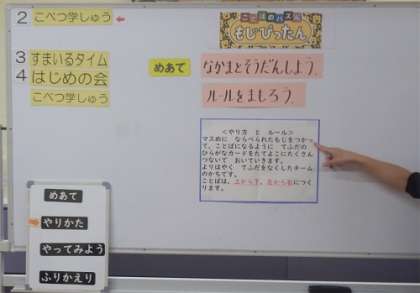 2 こべつ学しゅう
3 すまいるタイム
4 はじめの会
こべつ学しゅう
ことばのパズル
もじぴったん
めあて
なかまとそうだんしよう。
ルールをまもろう。
＜やり方 と ルール＞
マスめに ならべられたもじをつかっ
て、ことばになるように てふだの
ひらがなカードをたてよこにたくさん
つないで おいていきます。
よりはやく てふだをなくしたチーム
のかちです。
ことばは、上から下、左から右につく
ります。
めあて
やりかた
やってみよう
ふりかえり